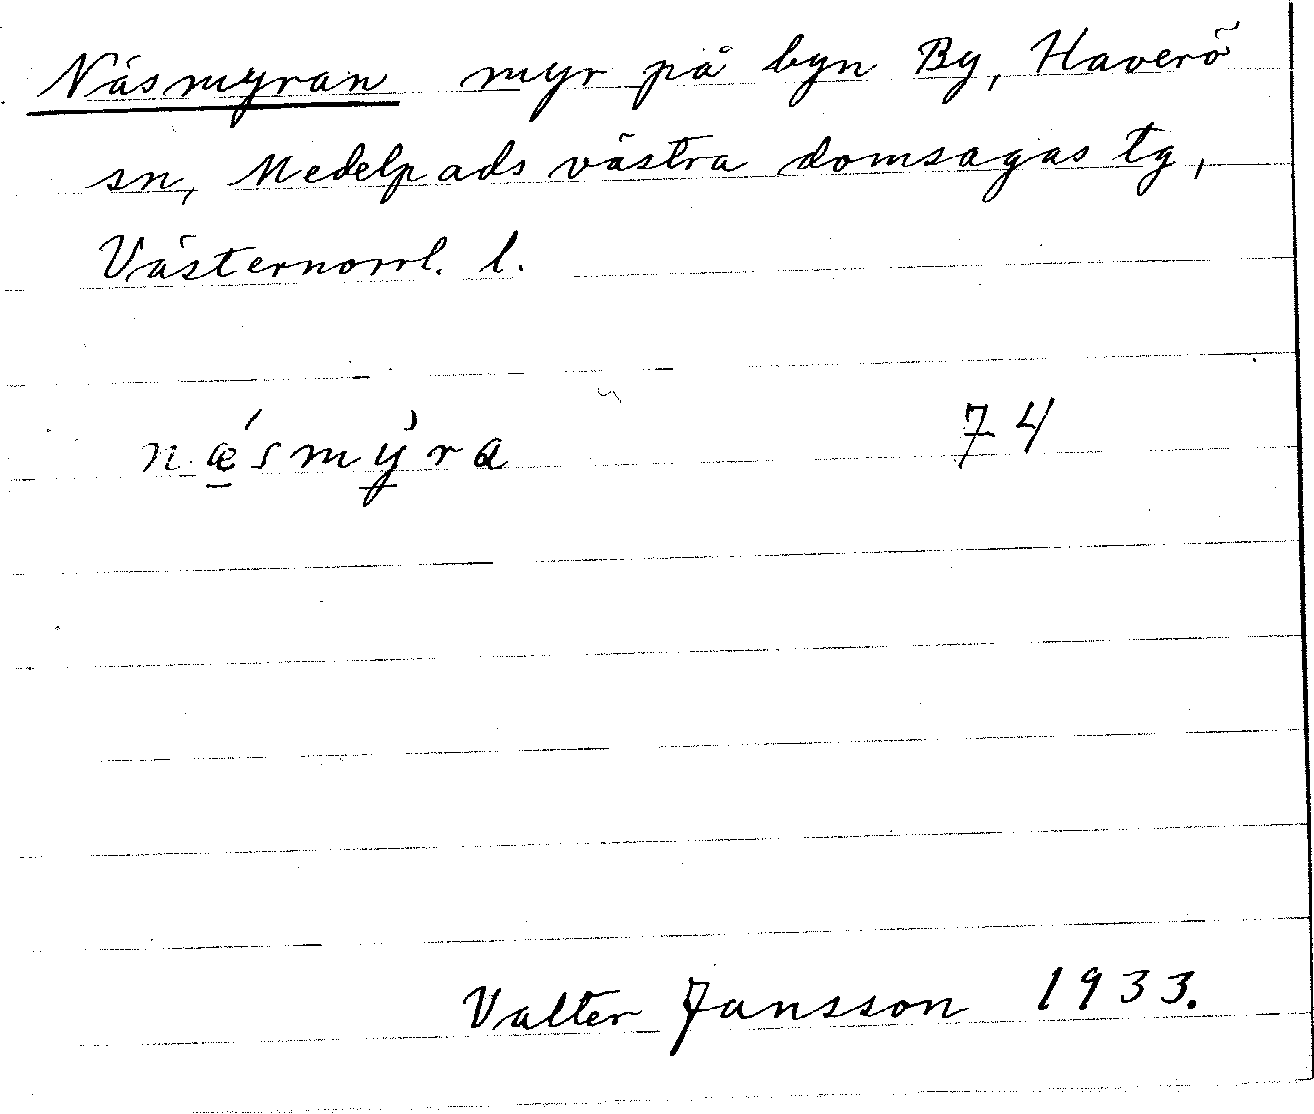 Näsmyran myr på byn By, Haverö
sn, Medelpads västra domsagas tg,
Västernorrl. l.
nǽ̲smỳ̲ra 74
Valter Jansson 1933.